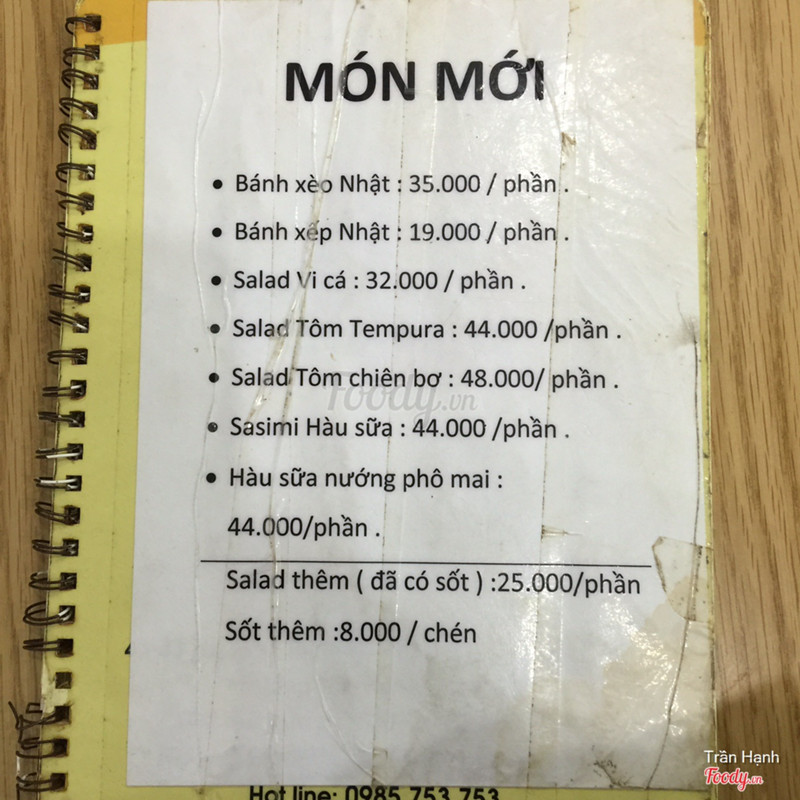 MÓN MỚI
• Bánh xèo Nhật : 35.000 / phần .
• Bánh xếp Nhật : 19.000 / phần .
• Salad Vi cá : 32.000 / phần .
• Salad Tôm Tempura : 44.000 /phần .
• Salad Tôm chiên bơ : 48.000/ phần .
Foody.vn
• Sasimi Hàu sữa : 44.000 /phần .
• Hàu sữa nướng phô mai :
44.000/phần .
Salad thêm ( đã có sốt ) :25.000/phần
Sốt thêm :8.000 / chén
Trần Hạnh
Foody.vn
Hot line: 0985 753 753